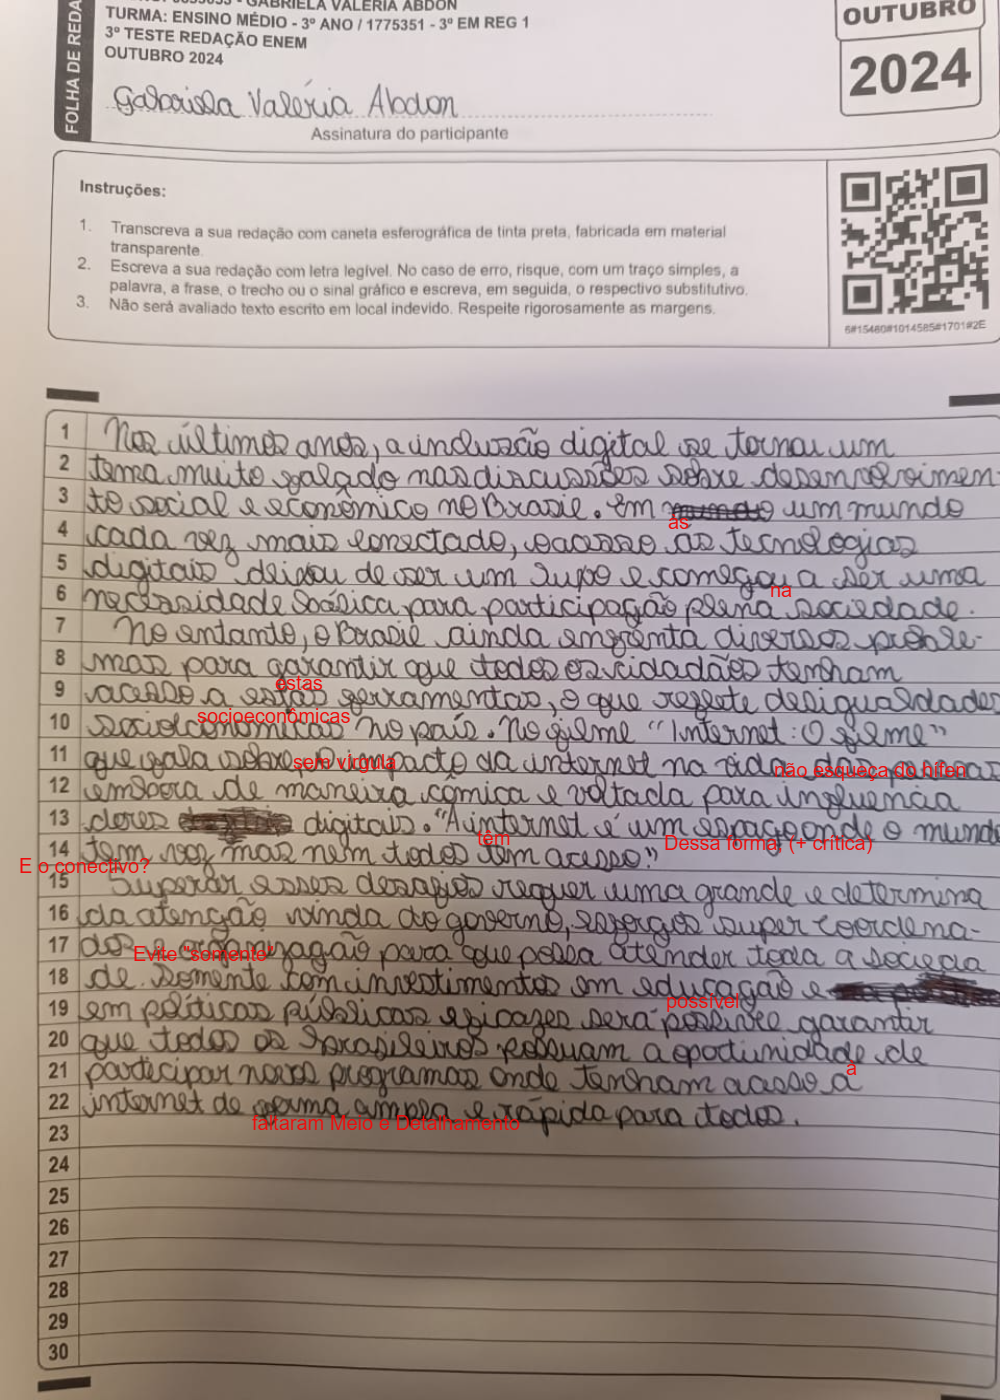 FOLHA DE REDA
GABRIELA VALERIA ABDON
TURMA: ENSINO MÉDIO - 3º ANO / 1775351 - 3º EM REG 1
3º TESTE REDAÇÃO ENEM
OUTUBRO 2024
OUTUBRO
2024
Gabriela Valéria Abdon
Assinatura do participante
Instruções:
1. Transcreva a sua redação com caneta esferográfica de tinta preta, fabricada em material
transparente.
2. Escreva a sua redação com letra legível. No caso de erro, risque, com um traço simples, a
palavra, a frase, o trecho ou o sinal gráfico e escreva, em seguida, o respectivo substitutivo.
3. Não será avaliado texto escrito em local indevido. Respeite rigorosamente as margens.
6#15480#1014585#1701#2E
1 Nos últimos anos, a inclusão digital se tornou um
2 tema muito falado nas discussões sobre desenvolvimen-
3 to social e econômico no Brasil. Em mundo um mundo
às
4 cada vez mais conectado, o acesso as tecnologias
5 digitais deixou de ser um luxo e começou a ser uma
na
6 necessidade básica para participação plena sociedade.
7 No entanto, o Brasil ainda enfrenta diversos proble-
8 mas para garantir que todos os cidadãos tenham
estas
9 acesso a estás ferramentas, o que reflete desigualdades
socioeconômicas
10 socioeconomicas no país. No filme "Internet: O filme"
sem vírgula
não esqueça do hífen
11 que fala sobre, o impacto da internet na vida das pessoas
12 embora de maneira cômica e voltada para influencia
13 dores digitais. "A internet é um espaço onde o mundo
têm
Dessa forma, (+ crítica)
14 tem voz mas nem todos tem acesso"
E o conectivo?
15 Superar esses desafios requer uma grande e determina
16 da atenção vinda do governo, esforços super coordena-
17 dos e organização para que possa atender toda a socieda
Evite "somente"
18 de. Somente com investimentos em educação e
possível
19 em políticas públicas eficazes será possivel garantir
20 que todos os brasileiros possuam a oportunidade de
à
21 participar novos programas onde tenham acesso a
22 internet de forma ampla e rápida para todos.
faltaram Meio e Detalhamento
23
24
25
26
27
28
29
30